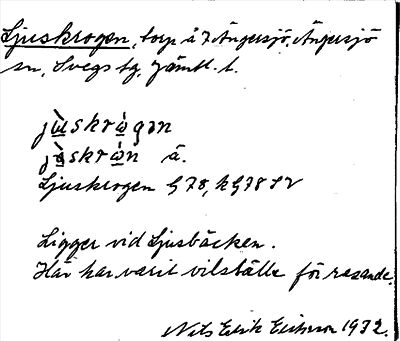 Ljuskrogen, torp å 7 Ängersjö, Ängersjö
sn, Svegs tg, Jämtl. l.
jùskrògən
jùskròn ä.
Ljuskrogen G 78, k G 78 SV
Ligger vid Ljusbäcken.
Här har varit vilställe för resande.
Nils Erik Eriksson 1932.